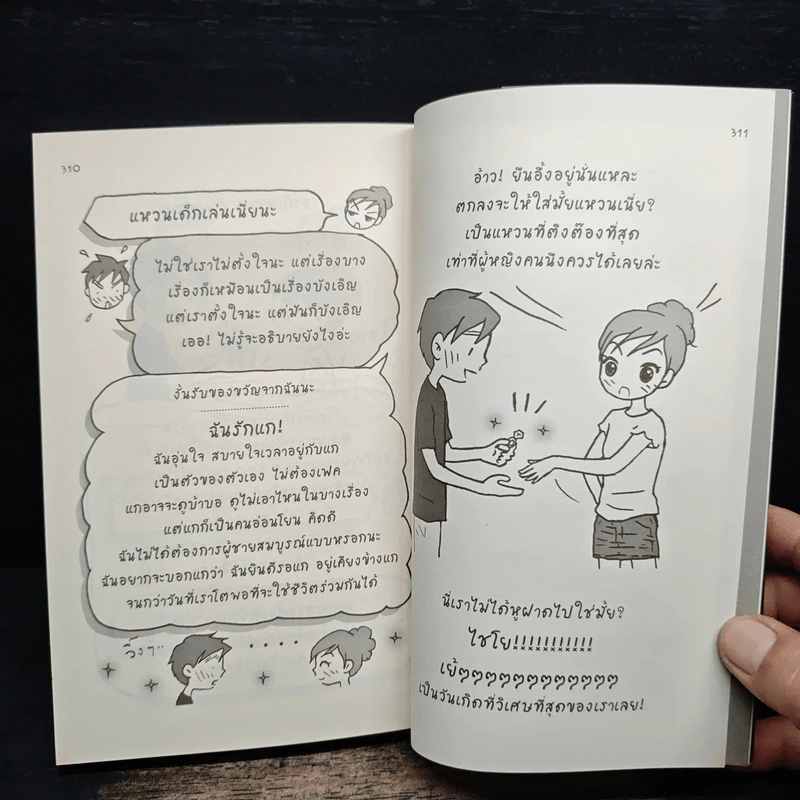 310
แหวนเด็กเล่นเนี่ยนะ
ไม่ใช่เราไม่ตั้งใจนะ แต่เรื่องบาง
เรื่องก็เหมือนเป็นเรื่องบังเอิญ
แต่เราตั้งใจนะ แต่มันก็บังเอิญ
เออ! ไม่รู้จะอธิบายยังไงอ่ะ
งั้นรับของขวัญจากฉันนะ
ฉันรักแก!
ฉันอุ่นใจ สบายใจเวลาอยู่กับแก
เป็นตัวของตัวเอง ไม่ต้องเฟค
แกอาจจะดูบ้าบอ ดูไม่เอาไหนในบางเรื่อง
แต่แกก็เป็นคนอ่อนโยน คิดดี
ฉันไม่ได้ต้องการผู้ชายสมบูรณ์แบบหรอกนะ
ฉันอยากจะบอกแกว่า ฉันยินดีรอแก อยู่เคียงข้างแก
จนกว่าวันที่เราโตพอที่จะใช้ชีวิตร่วมกันได้
วิ๊งๆ..
311
อ้าว! ยืนอึ้งอยู่นั่นแหละ
ตกลงจะให้ใส่มั้ยแหวนเนี่ย?
เป็นแหวนที่ติงต๊องที่สุด
เท่าที่ผู้หญิงคนนึงควรได้เลยล่ะ
นี่เราไม่ได้หูฝาดไปใช่มั้ย?
ไชโย!!!!!!!!!!!
เย้ๆๆๆๆๆๆๆๆๆๆๆๆ
เป็นวันเกิดที่วิเศษที่สุดของเราเลย!